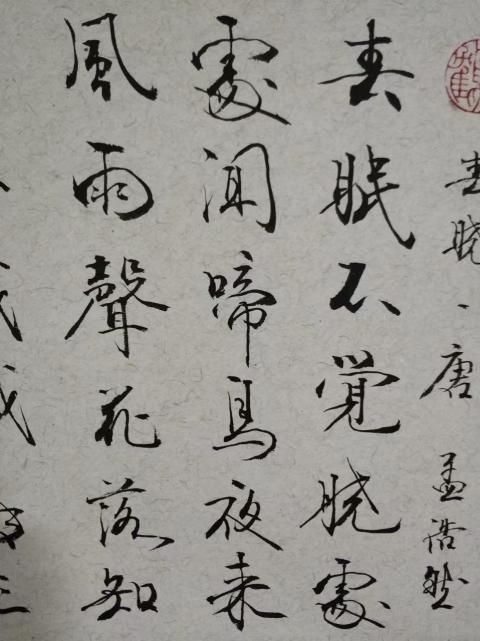 春晓、唐 孟浩然
春眠不覺晓處
處聞啼鳥夜来
風雨聲花落知